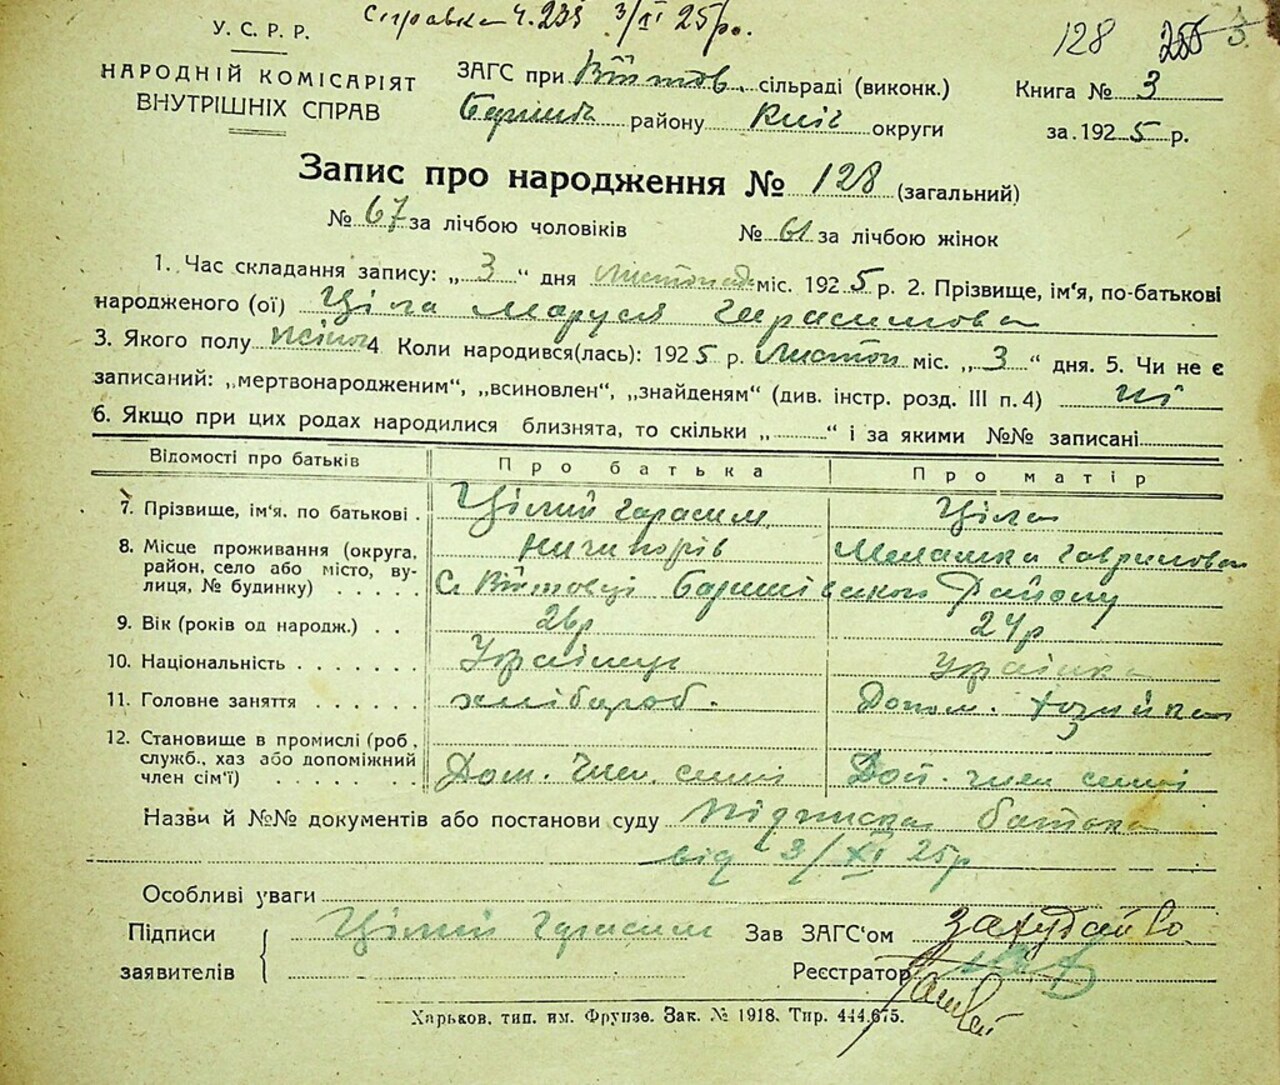 Справка ч. 235 3/XI 25р.
У. С. Р. Р.
128
НАРОДНІЙ КОМІСАРІЯТ
ВНУТРІШНІХ СПРАВ
ЗАГС при Війтов. сільраді (виконк.)
Баришів району Київ округи
Книга № 3
за 1925 р.
Запис про народження № 128 (загальний)
№ 67 за лічбою чоловіків № 61 за лічбою жінок
1. Час складання запису: „ 3 “ дня листопад міс. 1925 р. 2. Прізвище, ім'я, по-батькові
народженого (ої) Ціла Маруся Герасимова
3. Якого полу жіноч 4 Коли народився(лась): 1925 р. листоп міс. „ 3 “ дня. 5. Чи не є
записаний: „мертвонародженим“, „всиновлен“, „знайденям“ (див. інстр. розд. III п. 4) ні
6. Якщо при цих родах народилися близнята, то скільки „ “ і за якими №№ записані
Відомості про батьків Про батька Про матір
7. Прізвище, ім'я. по батькові . Цілий Гарасим Ціла
Ничипорів Меланка Гаврилова
8. Місце проживання (округа, район, село або місто, вулиця, № будинку) . . . . . С. Війтовці Баришівського Району
9. Вік (років од народж.) . . 26р 24р
10. Національність . . . . . . . Українць Українка
11. Головне заняття . . . . . . хлібороб. Допом. хозяйка
12. Становище в промислі (роб., служб., хаз або допоміжний
член сім'ї) . . . . . . . Доп. член. семі Доп. член семі
Назви й №№ документів або постанови суду Підписка батька
від 3/XI 25р
Особливі уваги
Підписи
заявителів
Цілий Гарасим
Зав ЗАГС'ом
Реєстратор
Харьков, тип. им. Фрунзе. Зак. № 1918. Тир. 444.675.